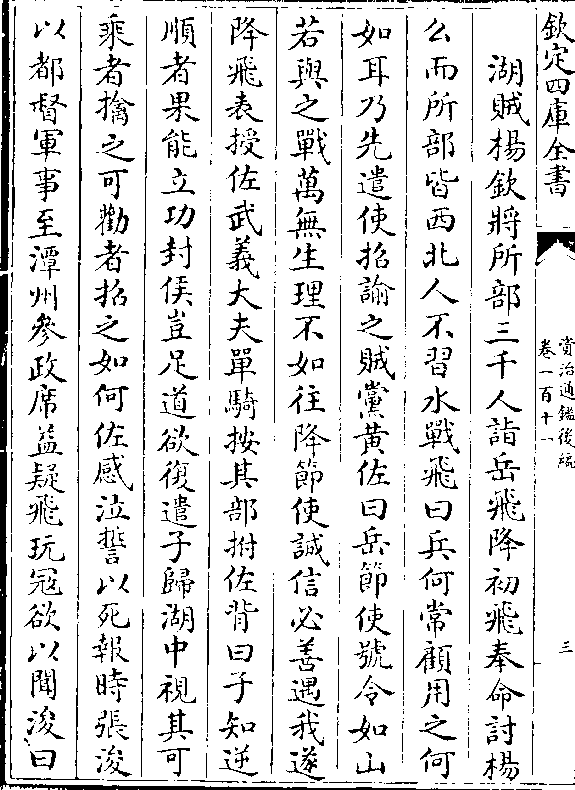 欽定四庫全書
資治通鑑後編
卷一百十一
三
湖賊楊欽將所部三千人詣岳飛降初飛奉命討楊
么而所部皆西北人不習水戰飛曰兵何常顧用之何
如耳乃先遣使招諭之賊黨黄佐曰岳節使號令如山
若與之戰萬無生理不如往降節使誠信必善遇我遂
降飛表授佐武義大夫單騎按其部拊佐背曰子知逆
順者果能立功封侯豈足道欲復遣子歸湖中視其可
乘者擒之可勸者招之如何佐感泣誓以死報時張浚
以都督軍事至潭州參政席益疑飛玩冦欲以聞浚曰